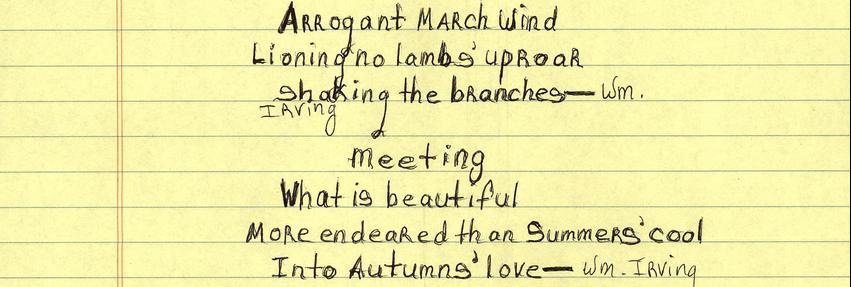 Arrogant March Wind
Lioning no lambs' uproar
shaking the branches — Wm.
Irving
meeting
What is beautiful
More endeared than Summers' cool
Into Autumns' love — Wm. Irving